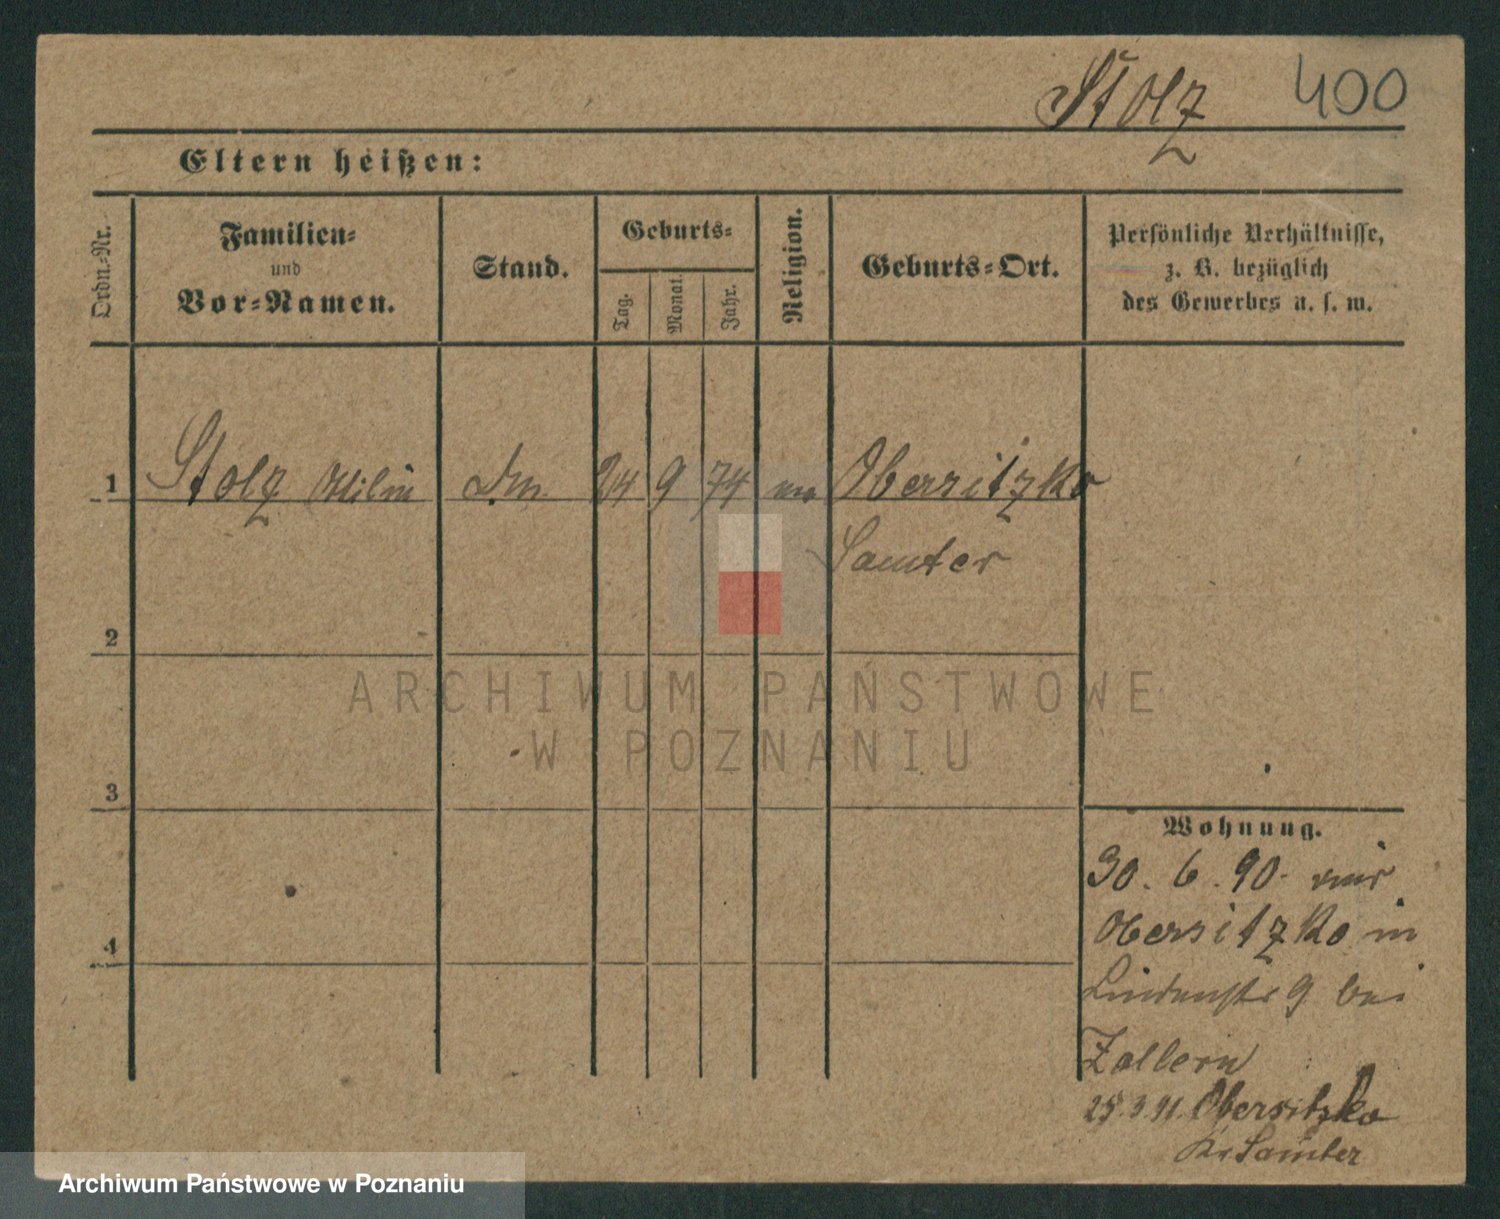 Stolz 400
Eltern heißen:
Ordn.-Nr.
Familien-
und
Vor-Namen.
Stand.
Geburts-
Tag.
Monat.
Jahr.
Religion.
Geburts-Ort.
Persönliche Verhältnisse,
z. B. bezüglich
des Gewerbes u. s. w.
1 Stolz Ottilie 24 9 74 Obersitzko
Samter
2
ARCHIWUM PAŃSTWOWE
W POZNANIU
3
Wohnung.
30. 6. 90.
Obersitzko in
Lindenstr 9 bei
Zollern
4
25.3.91. Obersitzko
Kr Samter
Archiwum Państwowe w Poznaniu